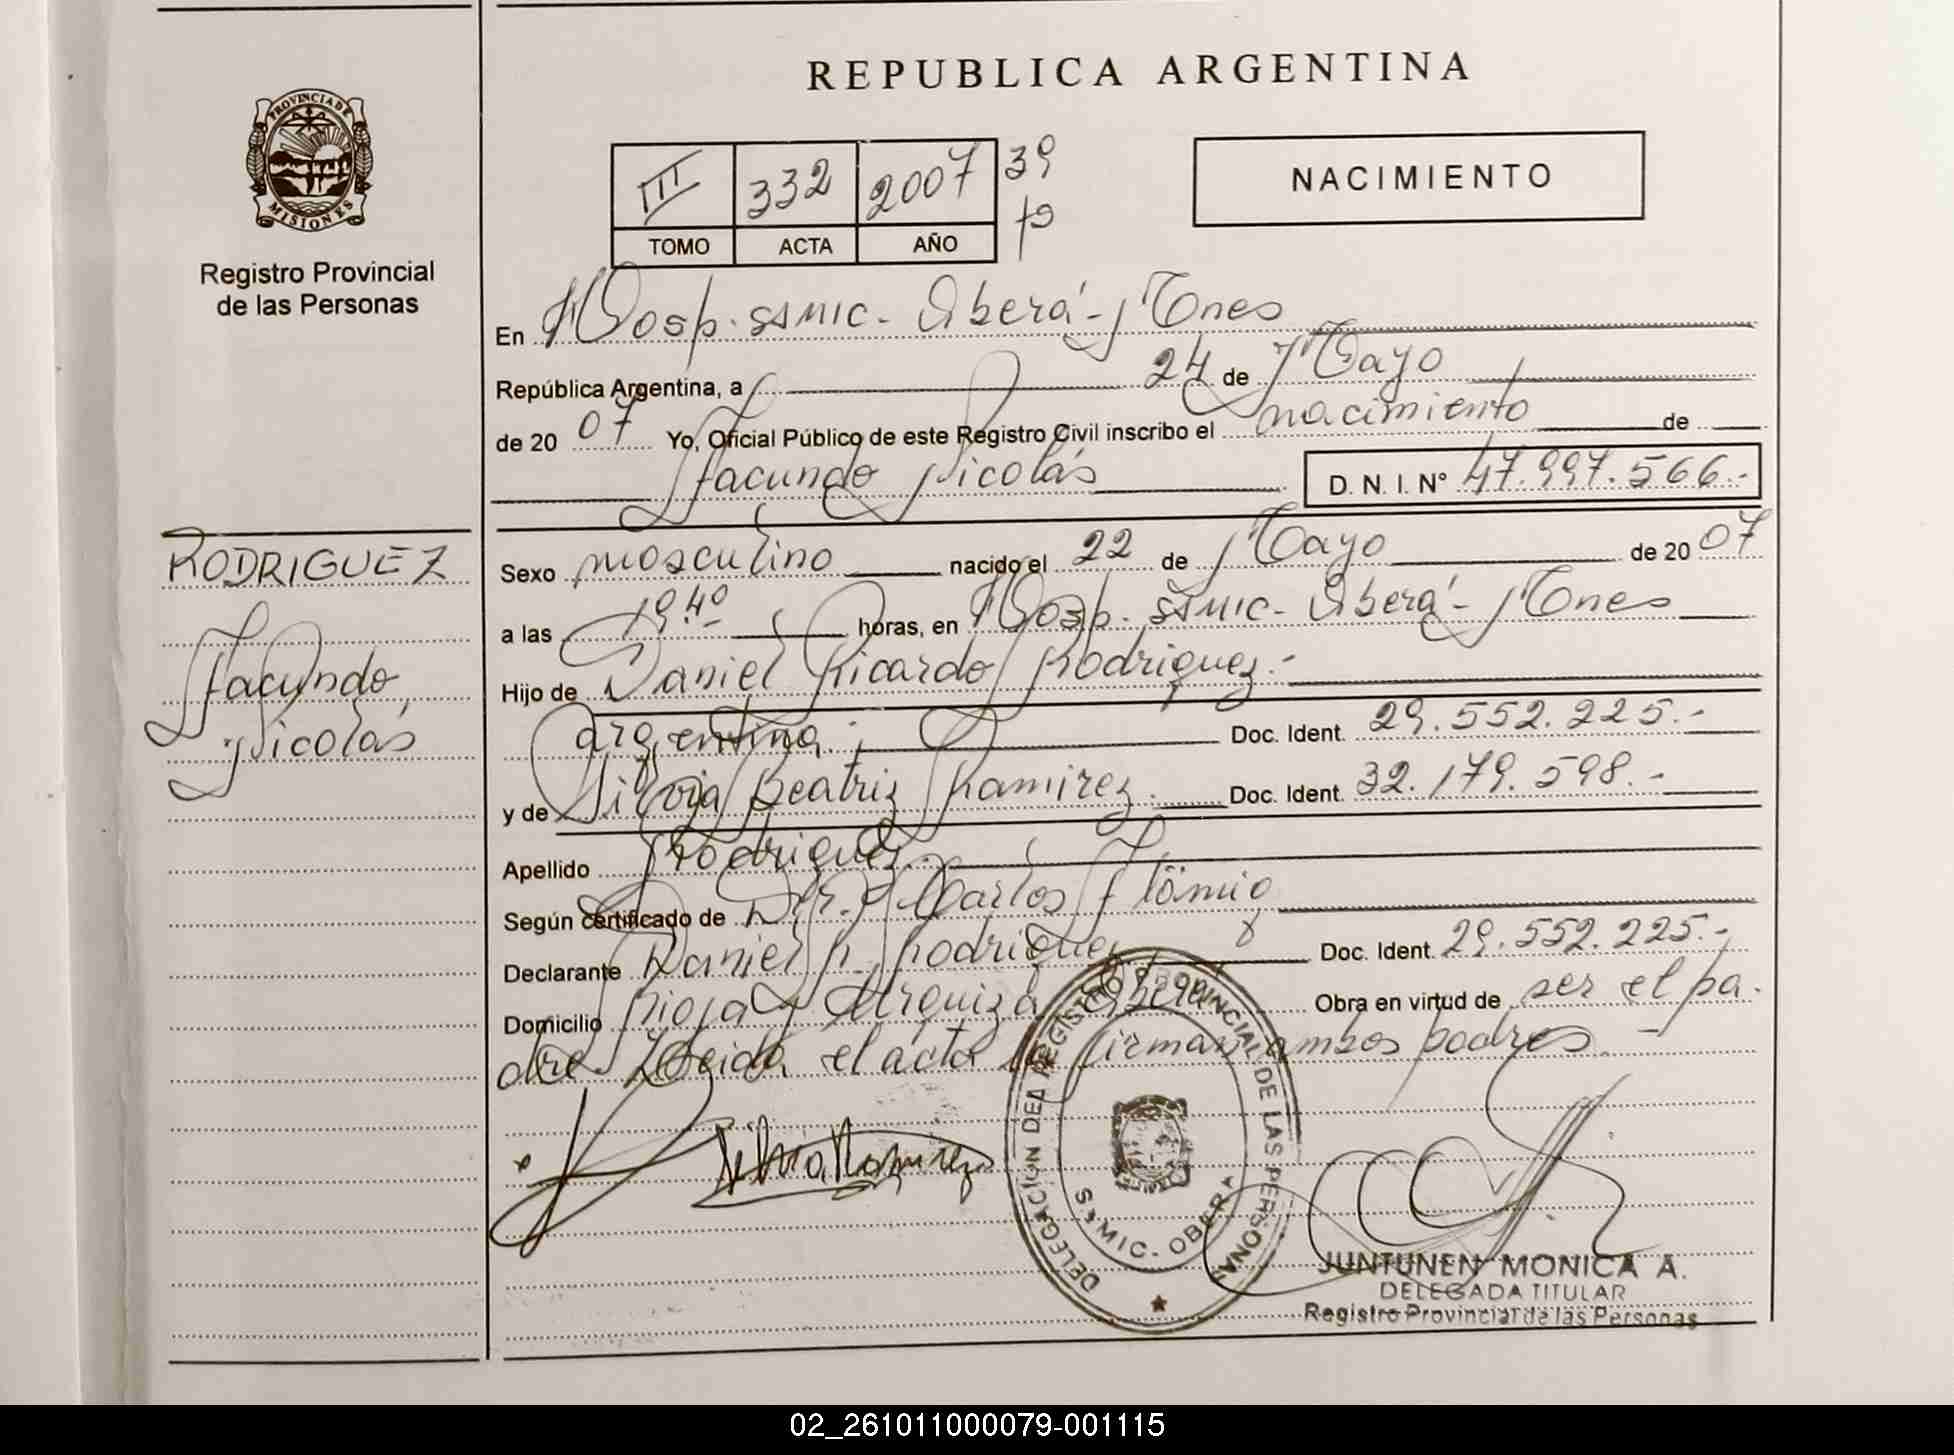 REPUBLICA ARGENTINA
PROVINCIA DE
MISIONES
Registro Provincial
de las Personas
III 332 2007 39
TOMO ACTA AÑO
NACIMIENTO
En Hosp. SAMIC - Oberá - Mnes
República Argentina, a 24 de Mayo
de 20 07 Yo, Oficial Público de este Registro Civil inscribo el nacimiento de
Facundo Nicolás D. N. I. Nº 47.997.566.-
RODRIGUEZ
Facundo
Nicolás
Sexo masculino nacido el 22 de Mayo de 20 07
a las 19.40 horas, en Hosp. SAMIC - Oberá - Mnes
Hijo de Daniel Ricardo Rodriguez.-
argentina Doc. Ident. 29.552.225.-
y de Silvia Beatriz Ramirez. Doc. Ident. 32.179.598.-
Apellido Rodriguez
Según certificado de Dr. Carlos
Declarante Daniel R. Rodriguez Doc. Ident. 29.552.225.-
Domicilio Rioja y Urquiza Oberá Obra en virtud de ser el pa-
dre Leida el acta la firman ambos padres
Silvia Ramirez
DELEGACION DEL REGISTRO PROVINCIAL DE LAS PERSONAS
SAMIC - OBERA
JUNTUNEN MONICA A.
DELEGADA TITULAR
Registro Provincial de las Personas
02_261011000079-001115